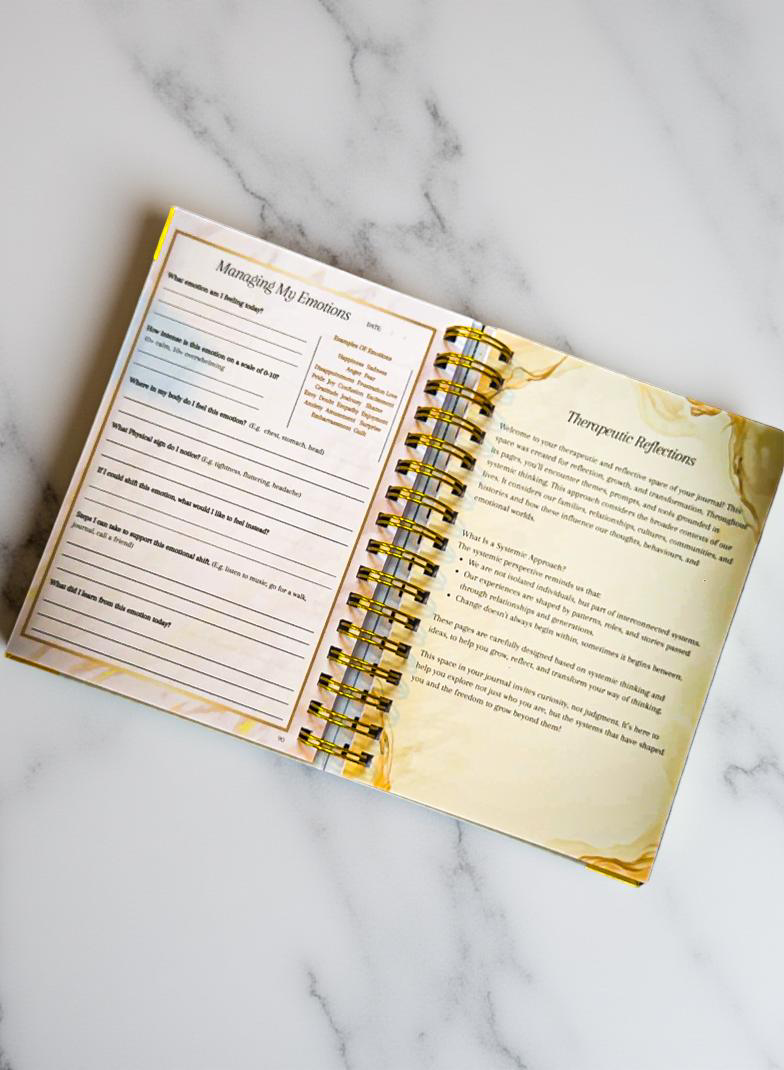 Managing My Emotions
DATE:
What emotion am I feeling today?
How intense is this emotion on a scale of 0-10?
(0= calm, 10= overwhelming
Examples Of Emotions
Happiness Sadness
Anger Fear
Disappointment Frustration Love
Pride Joy Confusion Excitement
Gratitude Jealousy Shame
Envy Doubt Empathy
Anxiety Amusement Surprise
Embarrassment Guilt
Where in my body do I feel this emotion? (E.g. chest, stomach, head)
What Physical sign do I notice? (E.g. tightness, fluttering, headache)
If I could shift this emotion, what would I like to feel instead?
Steps I can take to support this emotional shift. (E.g. listen to music, go for a walk,
journal, call a friend)
What did I learn from this emotion today?
90
Therapeutic Reflections
Welcome to your therapeutic and reflective space of your journal! This
space was created for reflection, growth, and transformation. Throughout
its pages, you'll encounter themes, prompts, and tools grounded in
systemic thinking. This approach considers the broader contexts of our
lives. It considers our families, relationships, cultures, communities, and
histories and how these influence our thoughts, behaviours, and
emotional worlds.
What Is a Systemic Approach?
The systemic perspective reminds us that:
• We are not isolated individuals, but part of interconnected systems.
• Our experiences are shaped by patterns, roles, and stories passed
through relationships and generations.
• Change doesn't always begin within, sometimes it begins between.
These pages are carefully designed based on systemic thinking and
ideas, to help you grow, reflect, and transform your way of thinking.
This space in your journal invites curiosity, not judgment. It's here to
help you explore not just who you are, but the systems that have shaped
you and the freedom to grow beyond them!